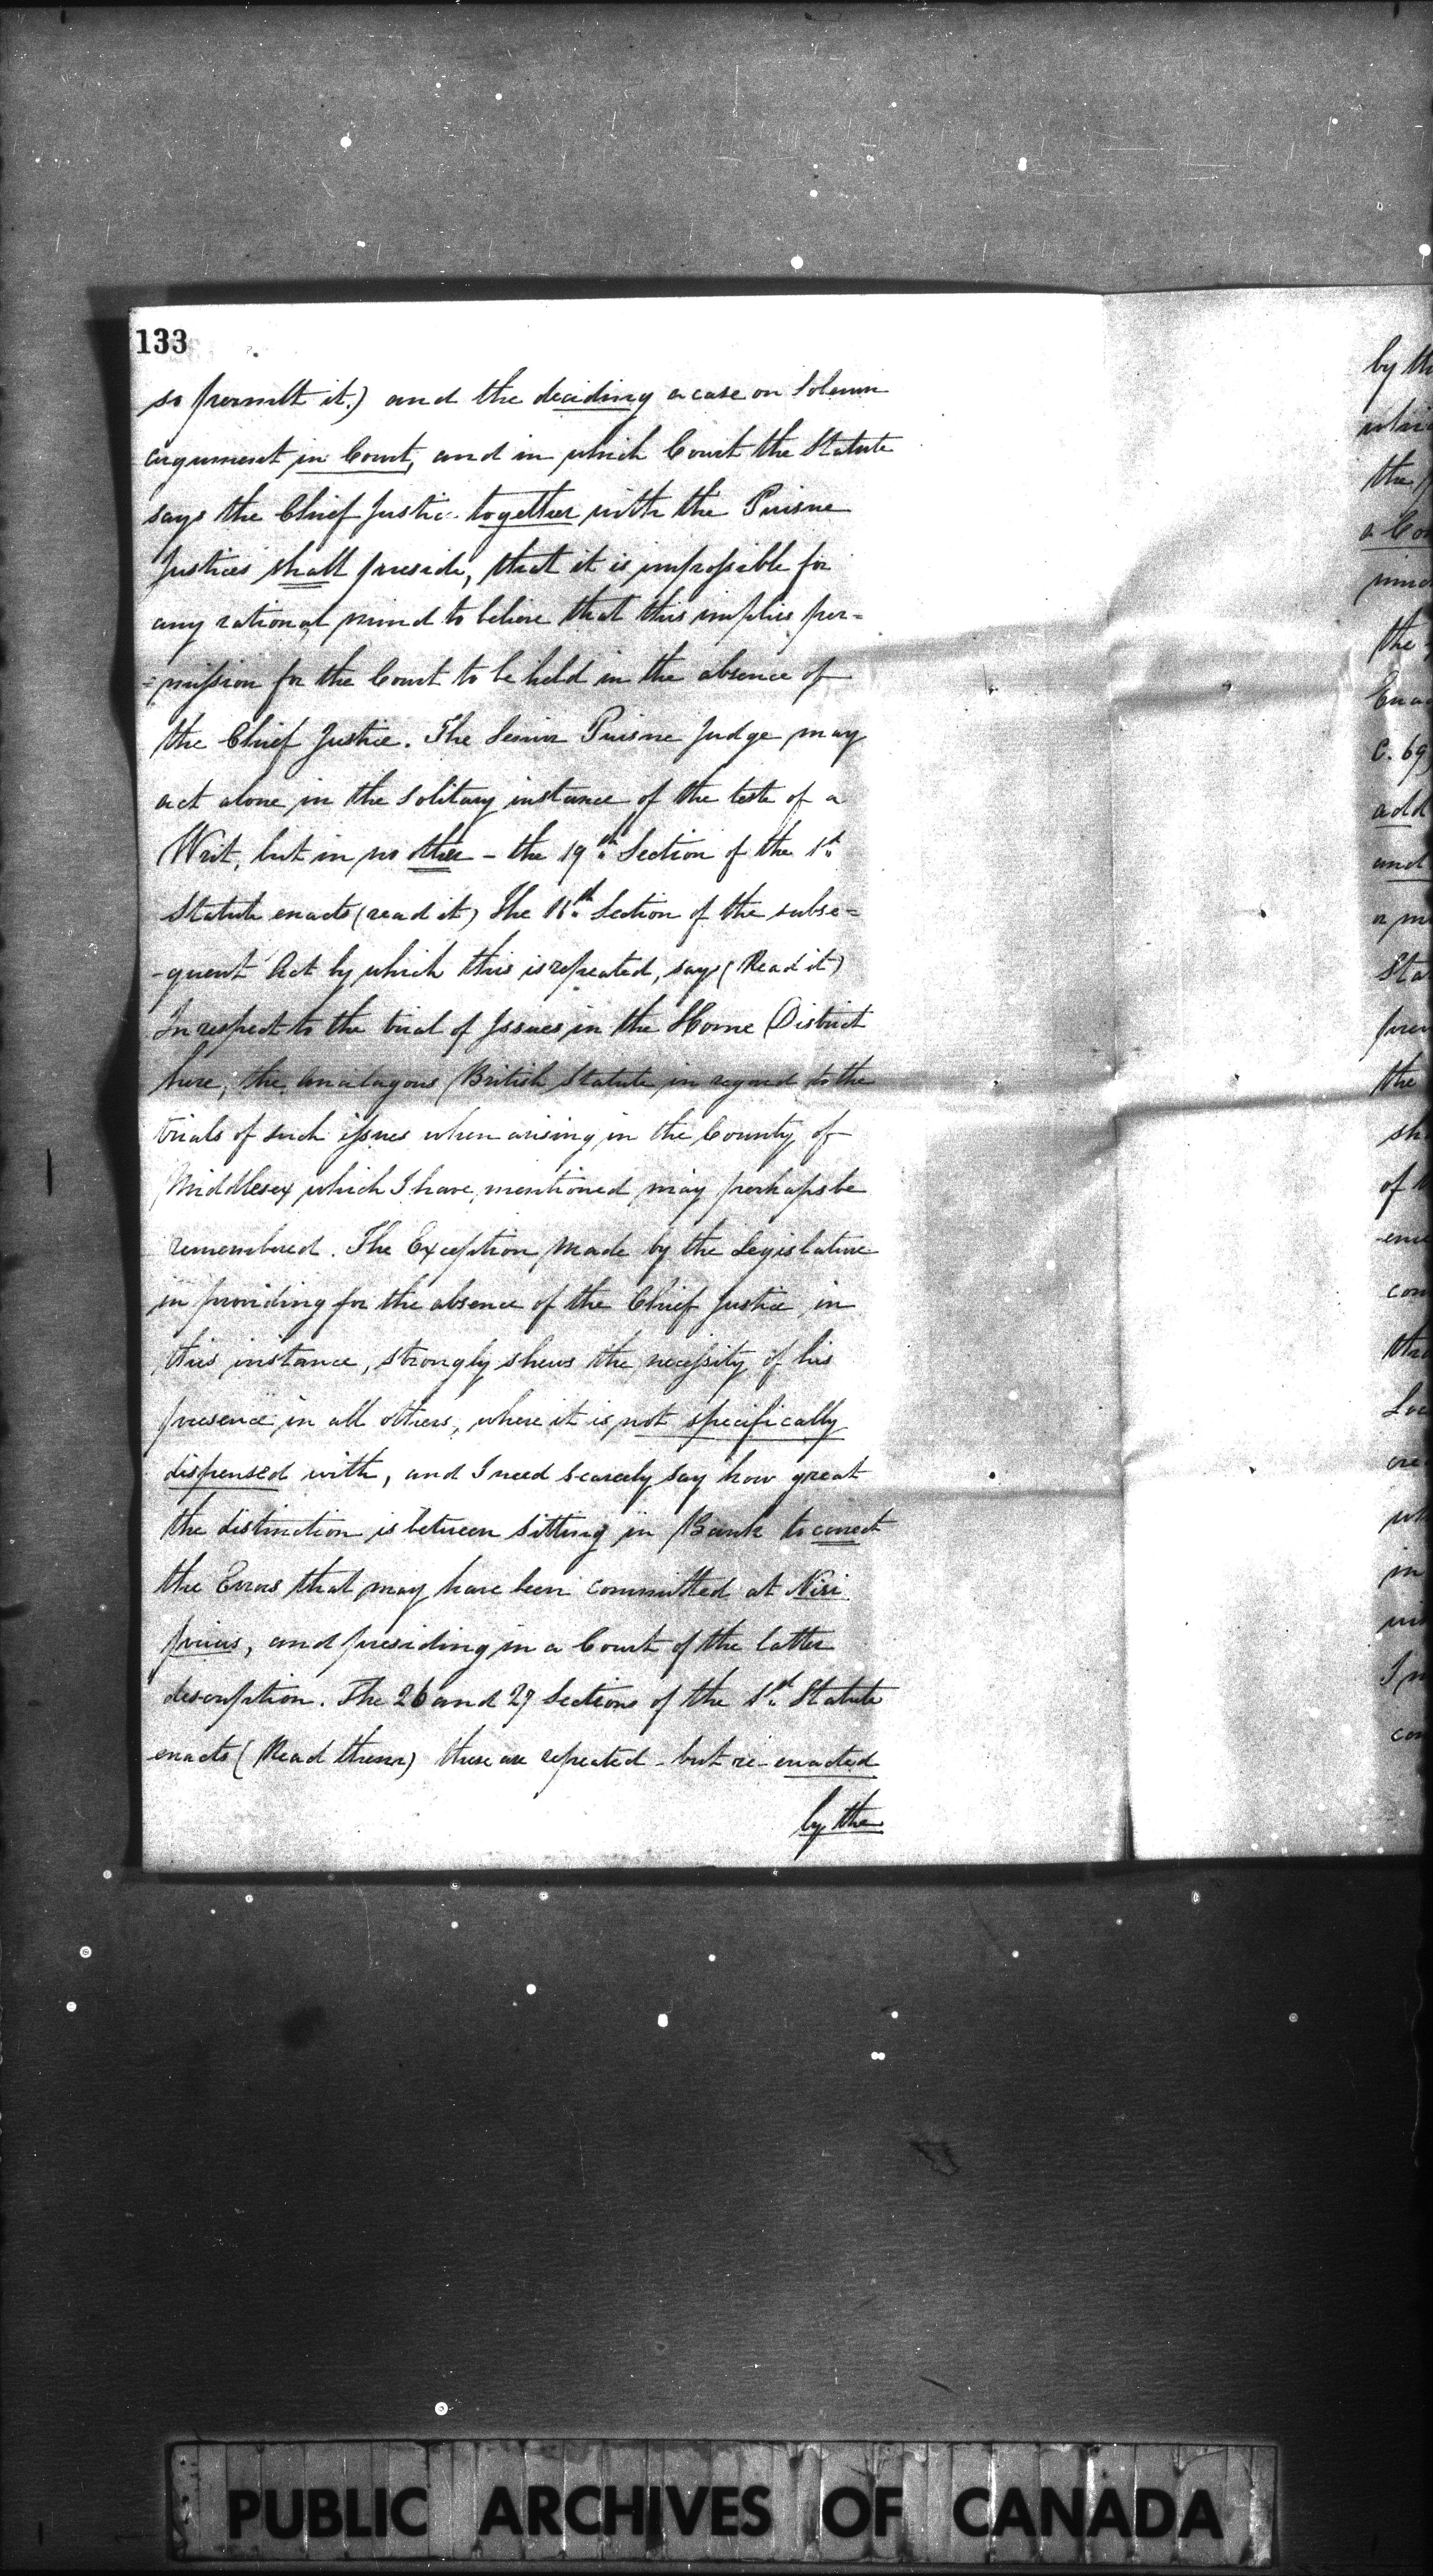 133
so permitt it.) and the deciding a case on Solemn
argument in Court, and in which Court the Statute
says the Chief Justice together with the Puisne
Justices shall preside, that it is impossible for
any rational mind to believe that this implies per=
=mission for the Court to be held in the absence of
the Chief Justice. The Senior Puisne Judge may
act alone in the solitary instance of the teste of a
Writ, but in no other - the 19th Section of the 1st
Statute enacts (read it) The 11th Section of the subse=
-quent Act by which this is repeated, says (Read it)
In respect to the trial of Issues in the Home District
here, the analagous British Statute in regard to the
trials of such issues when arising in the County of
Middlesex which I have mentioned may perhaps be
remembered. The Exception made by the Legislature
in providing for the absence of the Chief Justice in
this instance, strongly shews the necessity of his
presence in all others, where it is not specifically
dispensed with, and I need scarcely say how great
the distinction is between sitting in Bank to correct
the Errors that may have been committed at Nisi
prius, and presiding in a Court of the latter
description. The 26 and 27 Sections of the 1st Statute
enacts (Read them) these are repeated - but re-enacted
by the
by the
the
a Co
the
C. 69
add
and
a
the
of
PUBLIC ARCHIVES OF CANADA